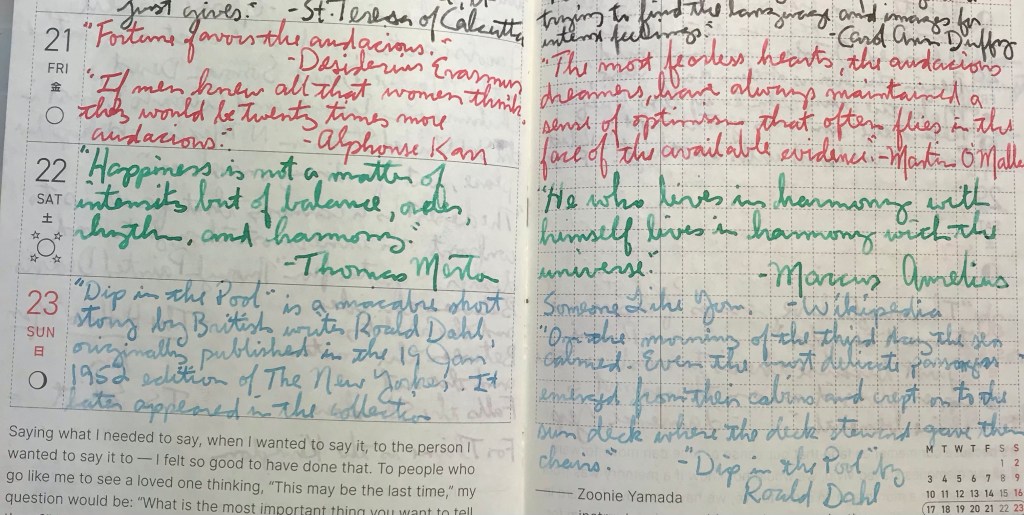 just gives." -St. Teresa of Calcutta
21
FRI
金
"Fortune favors the audacious."
-Desiderius Erasmus
"If men knew all that women think,
they would be twenty times more
audacious." -Alphonse Karr
22
SAT
土
"Happiness is not a matter of
intensity but of balance, order,
rhythm, and harmony."
-Thomas Merton
23
SUN
日
"Dip in the Pool" is a macabre short
story by British writer Roald Dahl,
originally published in the 19 Jan
1952 edition of The New Yorker. It
later appeared in the collection
Saying what I needed to say, when I wanted to say it, to the person I
wanted to say it to — I felt so good to have done that. To people who
go like me to see a loved one thinking, "This may be the last time," my
question would be: "What is the most important thing you want to tell
trying to find the language and images for
intense feelings." -Carol Ann Duffy
"The most fearless hearts, the audacious
dreamers, have always maintained a
sense of optimism that often flies in the
face of the available evidence." -Martin O'Malle
"He who lives in harmony with
himself lives in harmony with the
universe." -Marcus Aurelius
Someone Like You. -Wikipedia
"On the morning of the third day the sea
calmed. Even the most delicate passengers
emerged from their cabins and crept on to the
sun deck where the deck steward gave them
chairs." -"Dip in the Pool" by
Roald Dahl
Zoonie Yamada
M T W T F S S
1 2
3 4 5 6 7 8 9
10 11 12 13 14 15 16
17 18 19 20 21 22 23